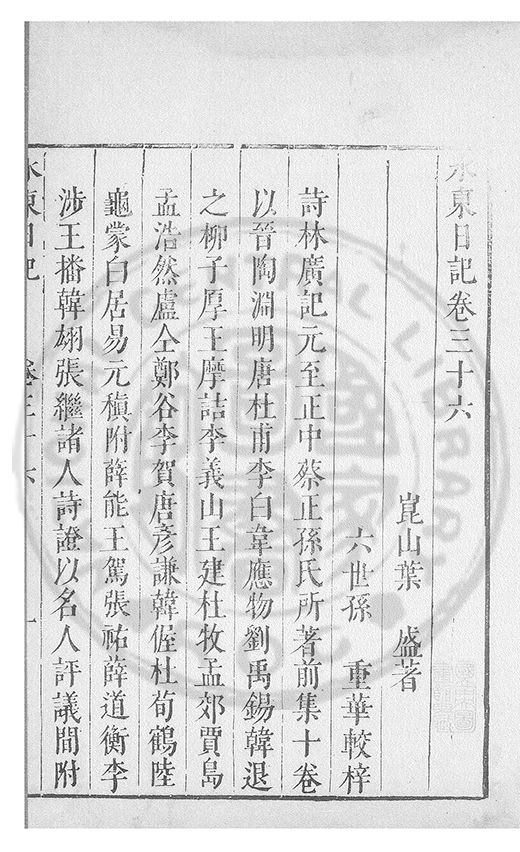 水東日記卷三十六
崑山葉　盛著
六世孫　重華較梓
詩林廣記元至正中蔡正孫氏所著前集十卷
以晉陶淵明唐杜甫李白韋應物劉禹錫韓退
之柳子厚王摩詰李義山王建杜牧孟郊賈島
孟浩然盧仝鄭谷李賀唐彥謙韓偓杜荀鶴陸
龜蒙白居易元稹附薛能王駕張祐薛道衡李
涉王播韓翃張繼諸人詩證以名人評議間附
水東日記　卷三十六　一
CENTRAL LIBRARY